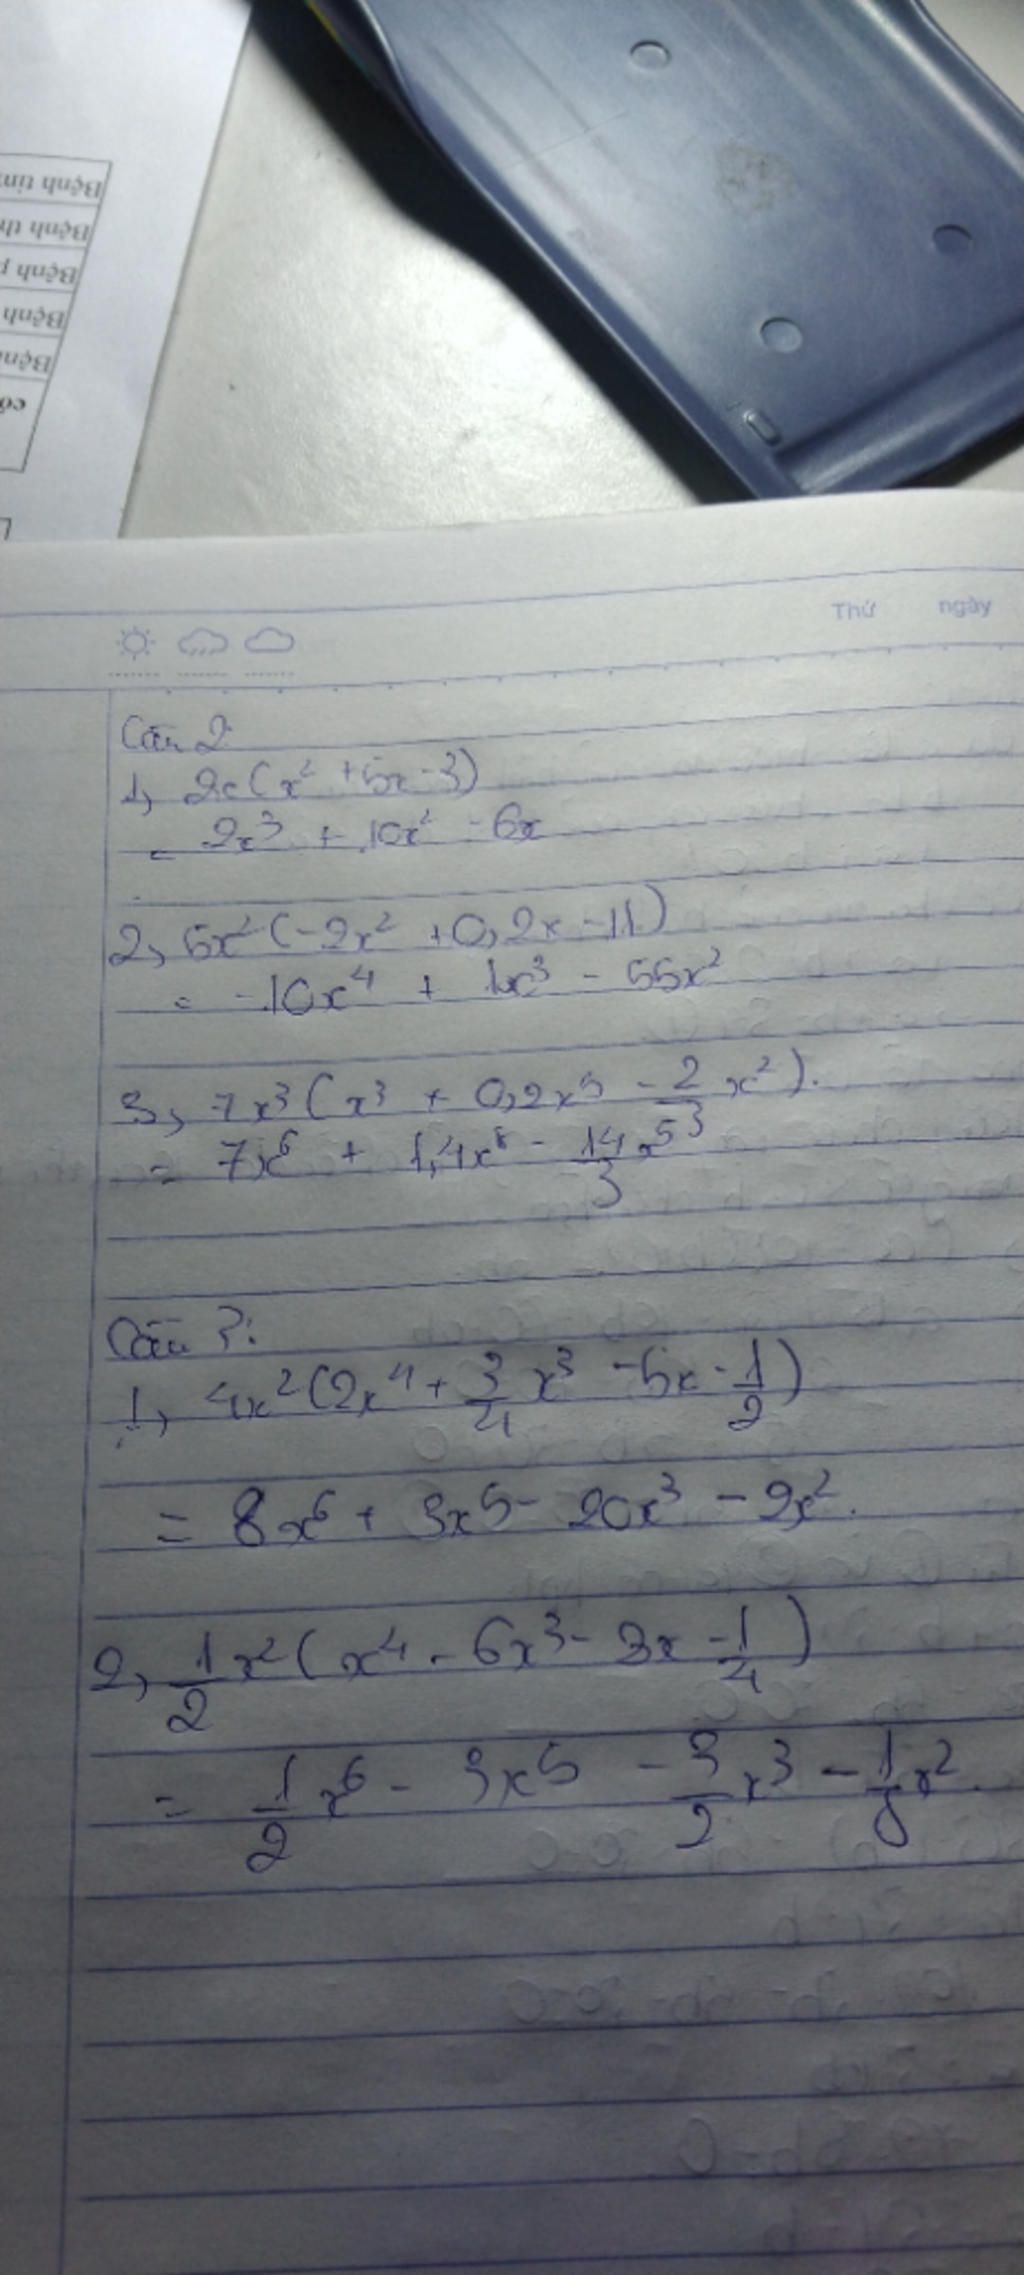 Bệnh tim
Bệnh th
Bệnh p
Bệnh
Bệnh
có
Thứ ngày
Câu 2
1, 2x(x² + 5x - 3)
= 2x³ + 10x² - 6x
2, 5x²(-2x² + 0,2x - 11)
= -10x⁴ + 1x³ - 55x²
3, 7x³(x³ + 0,2x⁵ - 2/3 x²).
= 7x⁶ + 1,4x⁸ - 14/3 x⁵
Câu 3:
1, 4x²(2x⁴ + 3/4 x³ - 5x - 1/2)
= 8x⁶ + 3x⁵ - 20x³ - 2x².
2, 1/2 x²(x⁴ - 6x³ - 3x - 1/4)
= 1/2 x⁶ - 3x⁵ - 3/2 x³ - 1/8 x².